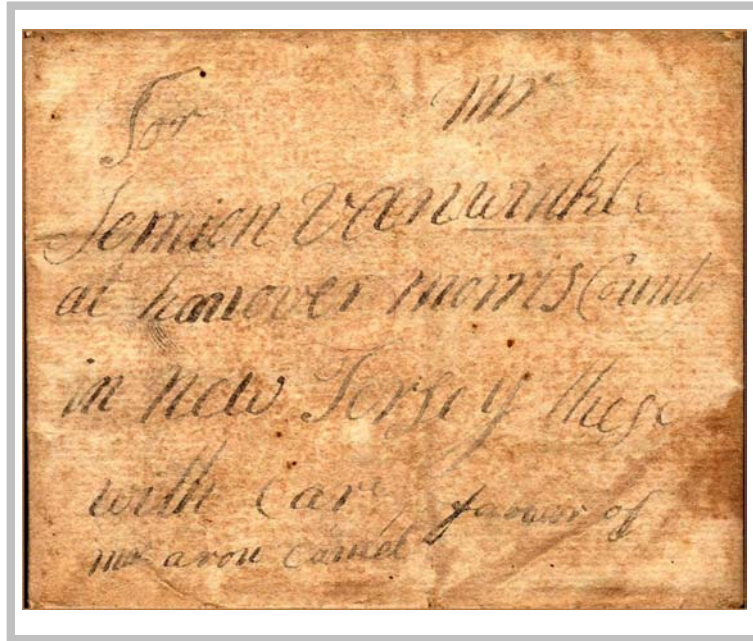 For Mr
Simion Vanwinkle
at hanover morris County
in new Jersey these
with Care favour of
mr aron Camel